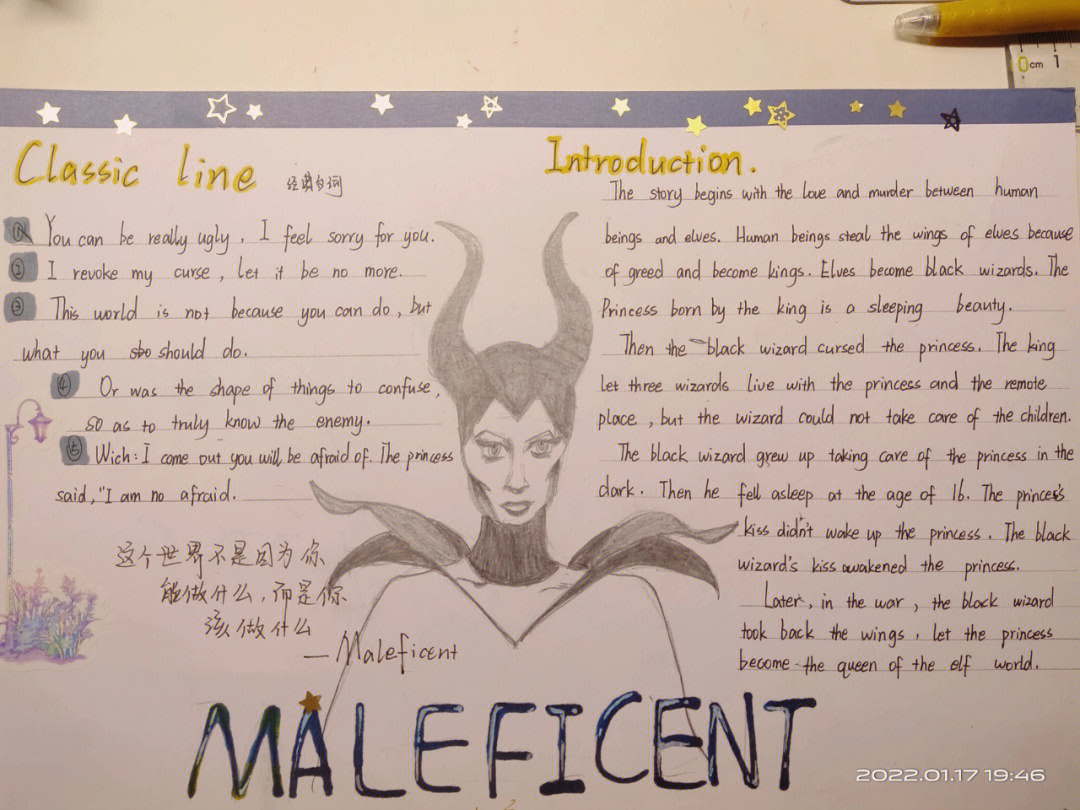 Classic line 经典台词
① You can be really ugly, I feel sorry for you.
② I revoke my curse, let it be no more.
③ This world is not because you can do, but
what you sho should do.
④ Or was the shape of things to confuse,
so as to truly know the enemy.
⑤ Wich: I come out you will be afraid of. The princess
said, "I am no afraid.
这个世界不是因为你
能做什么,而是你
该做什么
—Maleficent
Introduction.
The story begins with the love and murder between human
beings and elves. Human beings steal the wings of elves because
of greed and become kings. Elves become black wizards. The
Princess born by the king is a sleeping beauty.
Then the black wizard cursed the princess. The king
let three wizards live with the princess and the remote
place, but the wizard could not take care of the children.
The black wizard grew up taking care of the princess in the
dark. Then he fell asleep at the age of 16. The prince's
kiss didn't wake up the princess. The black
wizard's kiss awakened the princess.
Later, in the war, the black wizard
took back the wings, let the princess
become the queen of the elf world.
MALEFICENT
0cm 1
2022.01.17 19:46